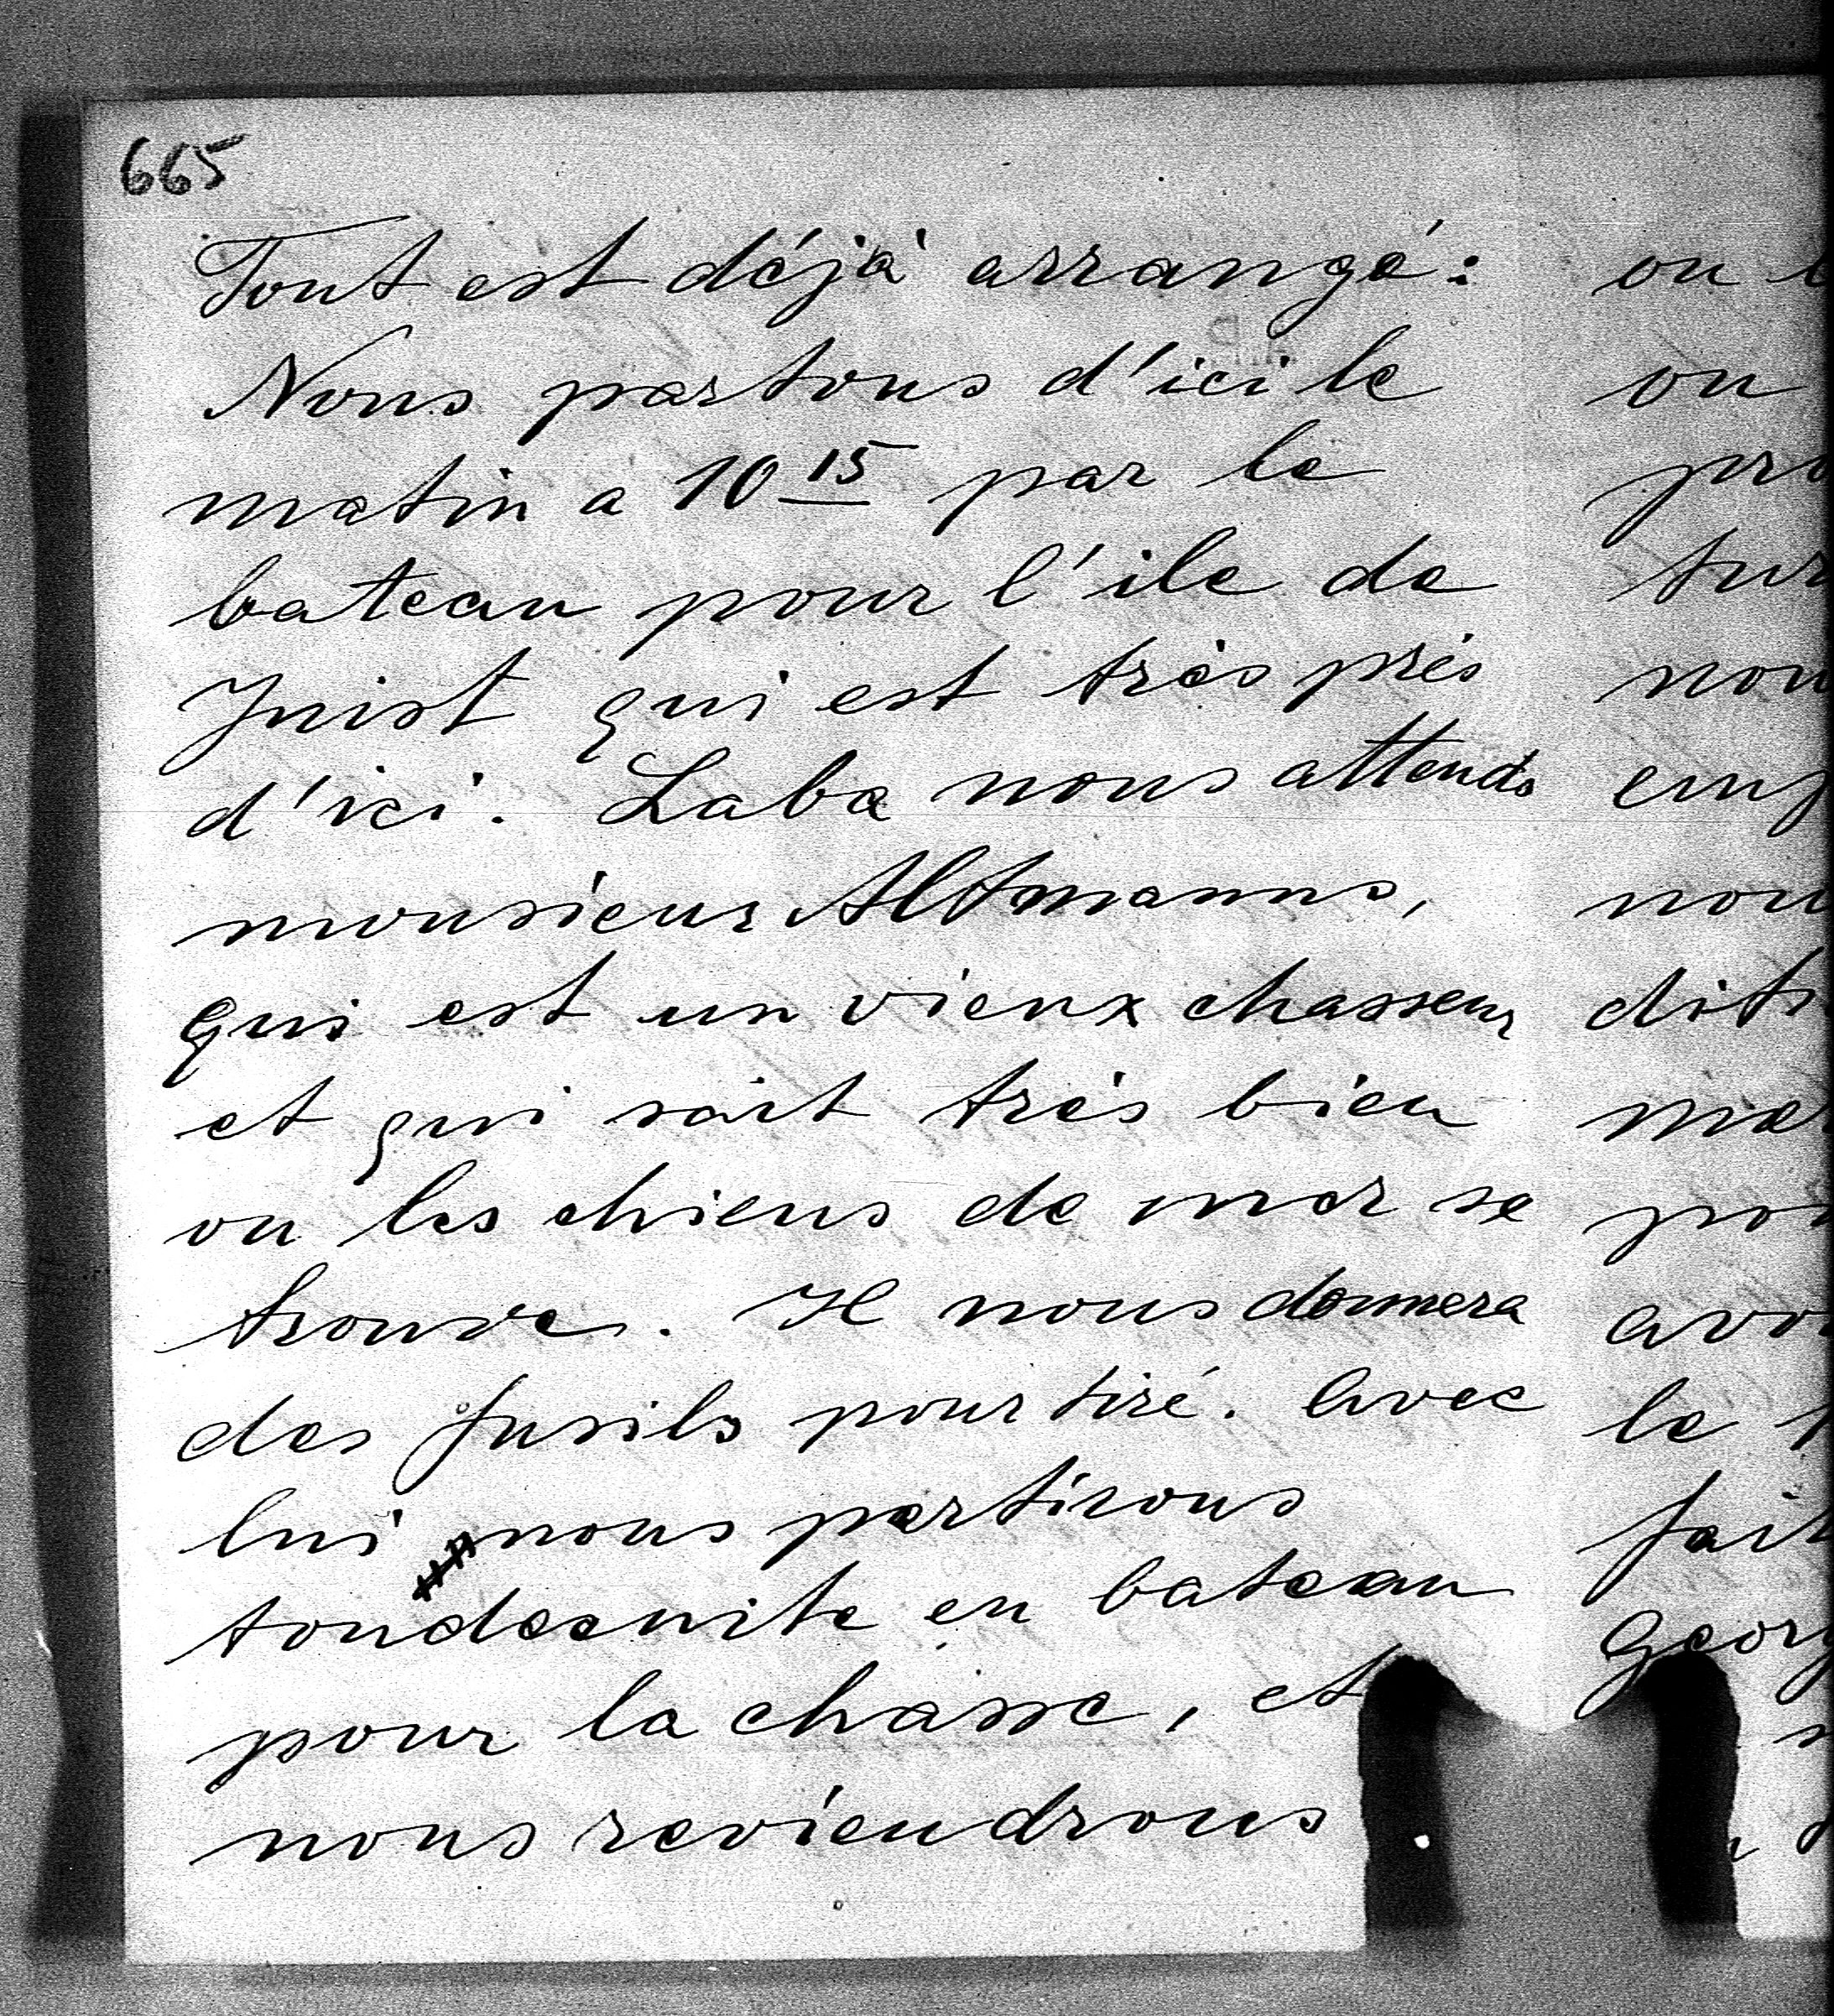 665
Tout est déjà arrangé:
Nous partons d'ici le
matin a 10 15 par le
bateau pour l'ile de
Juist qui est très près
d'ici. Laba nous attends
monsieur Altmanns,
qui est un vieux chasseur
et qui sait très bien
ou les chiens de mer se
trouve. Il nous donnera
des fusils pour tiré. Avec
lui nous partirons
toudesuite en bateau
pour la chasse, et
nous reviendrons
ou
on
nou
avo
le
fait